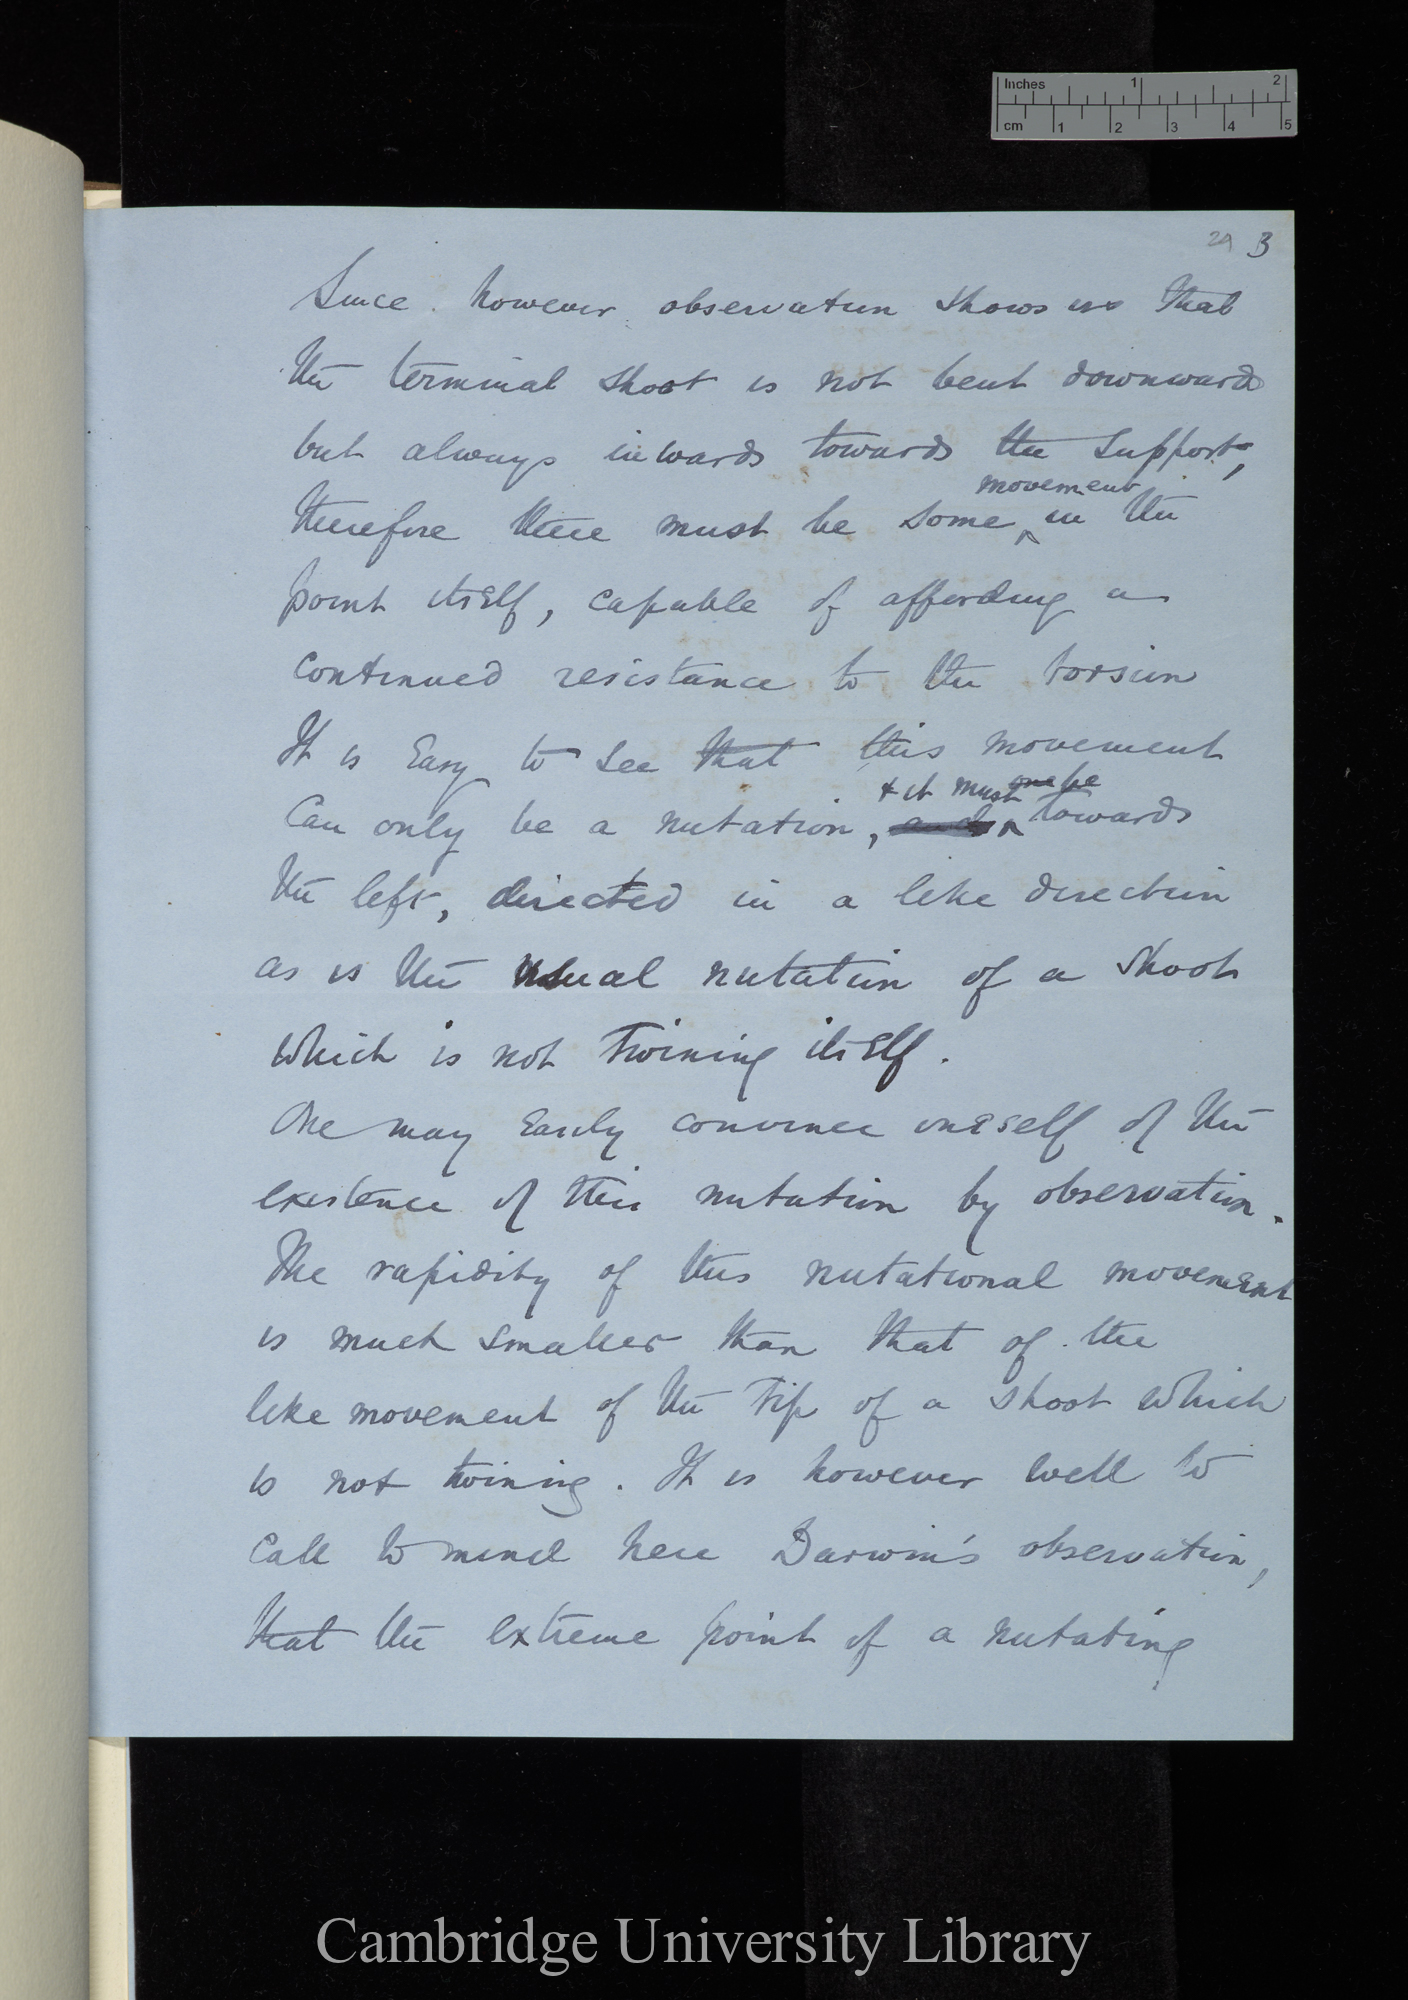 Inches 1 2
cm 1 2 3 4 5
29 3
Since however observation shows us that
the terminal shoot is not bent downwards
but always inwards towards the support,
movement
therefore there must be some ^ in the
point itself, capable of affording a
continued resistance to the torsion
It is easy to see that this movement
& it must be
can only be a nutation, and ^ towards
the left, directed in a like direction
as is the usual nutation of a shoot
which is not twining itself.
One may easily convince oneself of the
existence of this nutation by observation.
The rapidity of this nutational movement
is much smaller than that of the
like movement of the tip of a shoot which
is not twining. It is however well to
call to mind here Darwin's observation,
that the extreme point of a nutating
Cambridge University Library